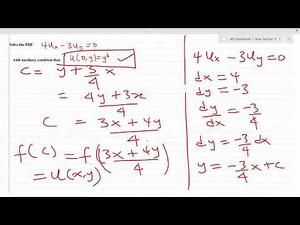 Solve the PDE
4Ux - 3Uy = 0
with auxiliary condition that U(0,y)=y³
C = y + 3/4 x
= 4y + 3x / 4
C = 3x + 4y / 4
f(c) = f(3x + 4y / 4)
= U(x,y)
4Ux - 3Uy = 0
dx = 4
dy = -3
dy/dx = -3/4
dy = -3/4 dx
y = -3/4 x + c